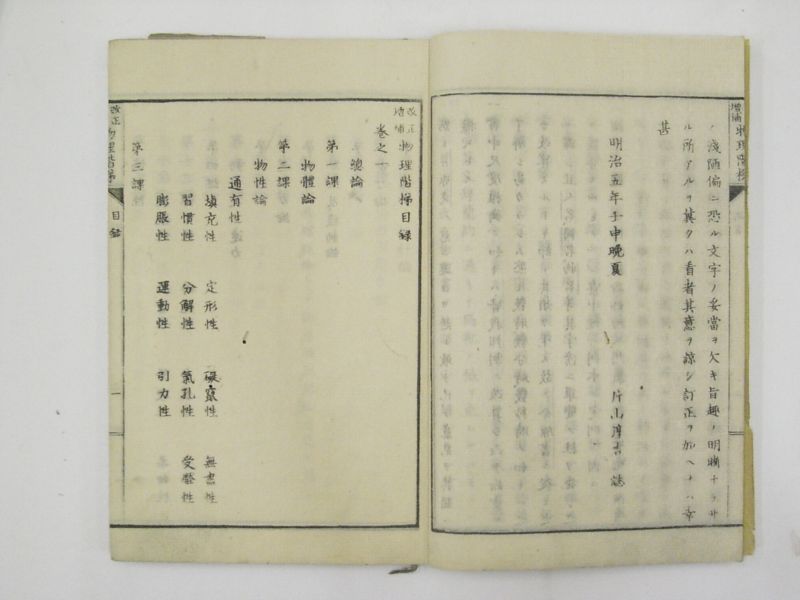 增補 物理階梯
ノ淺陋偏ニ恐ル文字ノ妥當ヲ欠キ旨趣ノ明晰ナラサ
ル所アルヲ其タハ看者其意ヲ諒シ訂正ヲ加ヘナハ幸
甚
明治五年壬申晩夏 片山淳吉誌
改正增補 物理階梯目録
卷之一
總論
第一課
物體論
第二課
物性論
通有性
填充性 定形性 礙竄性 無盡性
習慣性 分解性 氣孔性 受壓性
膨脹性 運動性 引力性
第三課
改正 物理階梯 目録 一